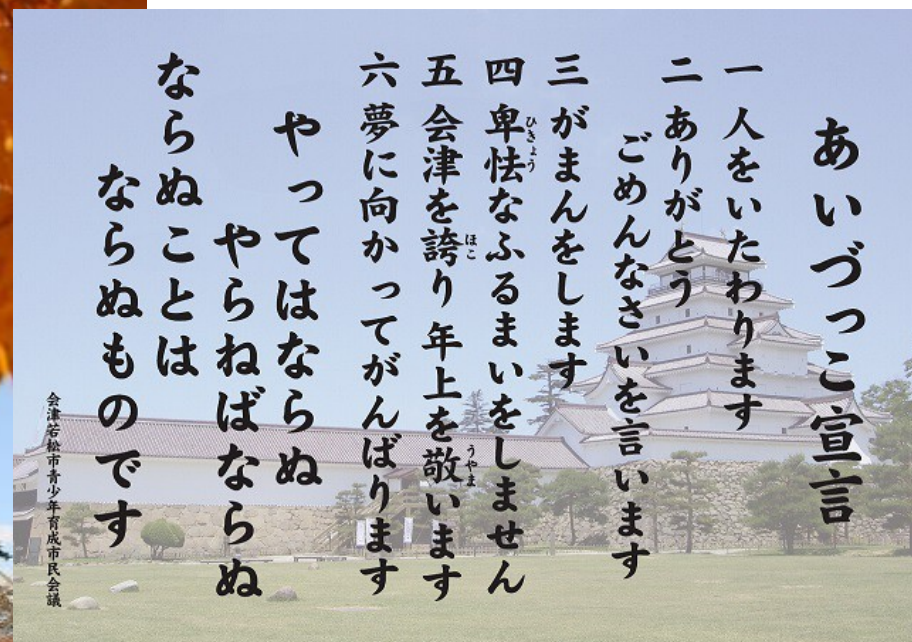 あいづっこ宣言
一 人をいたわります
二 ありがとう
ごめんなさいを言います
三 がまんをします
四 卑怯なふるまいをしません
ひきょう
五 会津を誇り 年上を敬います
ほこ
うやま
六 夢に向かってがんばります
やってはならぬ
やらねばならぬ
ならぬことは
ならぬものです
会津若松市青少年育成市民会議